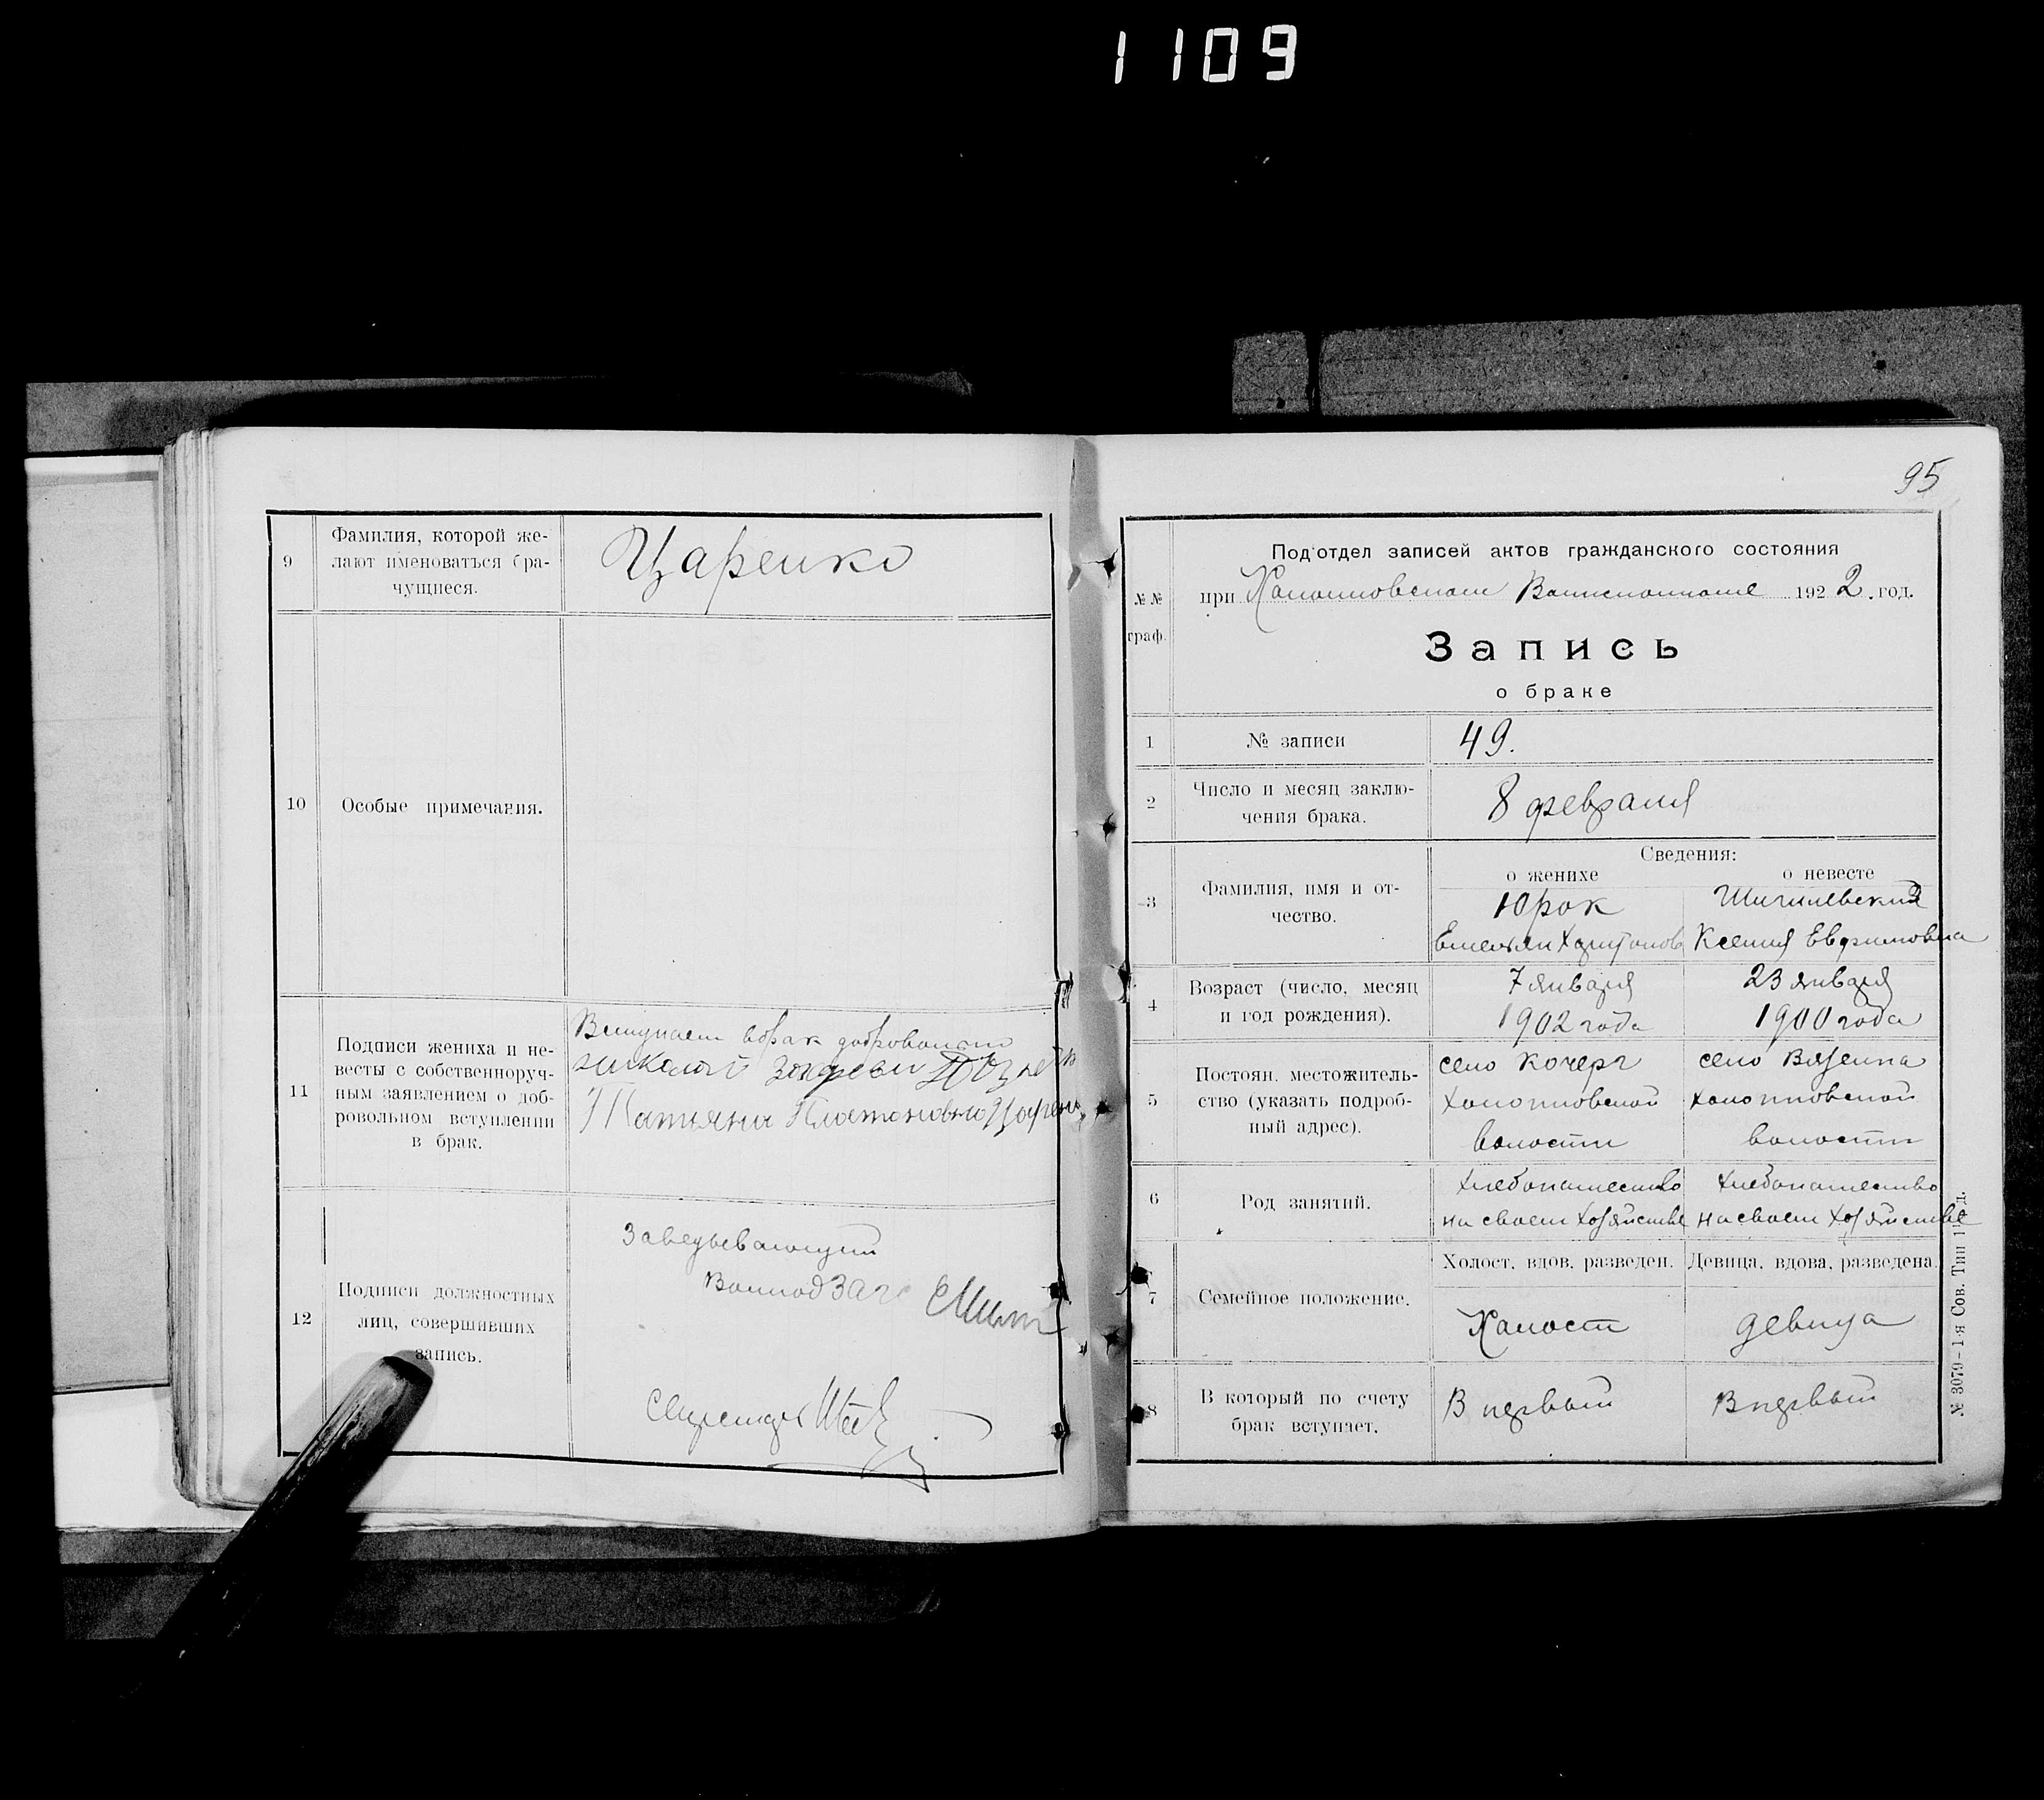 1109
9
Фамилия, которой же-
лают именоваться бра-
чущиеся.
Царенко
10
Особые примечания.
11
Подписи жениха и не-
весты с собственноруч-
ным заявлением о доб-
ровольном вступлении
в брак.
Вступаем в брак добровольно
николай
Татьяна Платоновна
12
Подписи должностных
лиц, совершивших
запись.
Заведывающий
Секретарь
95
№№
граф.
Под'отдел записей актов гражданского состояния
при 1922. год.
Запись
о браке
1
№ записи
49.
2
Число и месяц заклю-
чения брака.
8 февраля
3
Фамилия, имя и от-
чество.
Сведения:
о женихе
о невесте
Юрок
Емельян Харитонов
Ксения Евфимовна
4
Возраст (число, месяц
и год рождения).
7 января
1902 года
23 января
1900 года
5
Постоян. местожитель-
ство (указать подроб-
ный адрес).
село Кочерг
Холопковской
волости
село Вязенка
Холопковской
волости
6
Род занятий.
Хлебопашество
на своем хозяйстве
Хлебопашество
на своем хозяйстве
7
Семейное положение.
Холост, вдов, разведен.
Холост
Девица, вдова, разведена.
девица
8
В который по счету
брак вступает.
В первый
В первый
№ 3079-1-я Сов. Тип